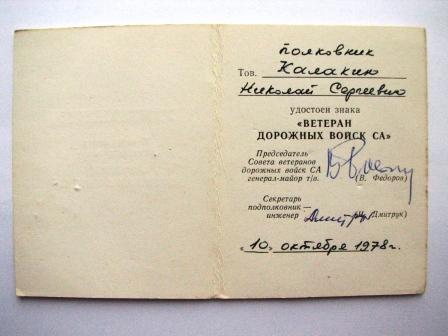 полковник
Тов. Калакин
Николай Сергеевич
удостоен знака
«ВЕТЕРАН
ДОРОЖНЫХ ВОЙСК СА»
Председатель
Совета ветеранов
дорожных войск СА
генерал-майор т/в. (В. Федоров)
Секретарь
подполковник —
инженер (Дмитрук)
«10» октября 1978 г.